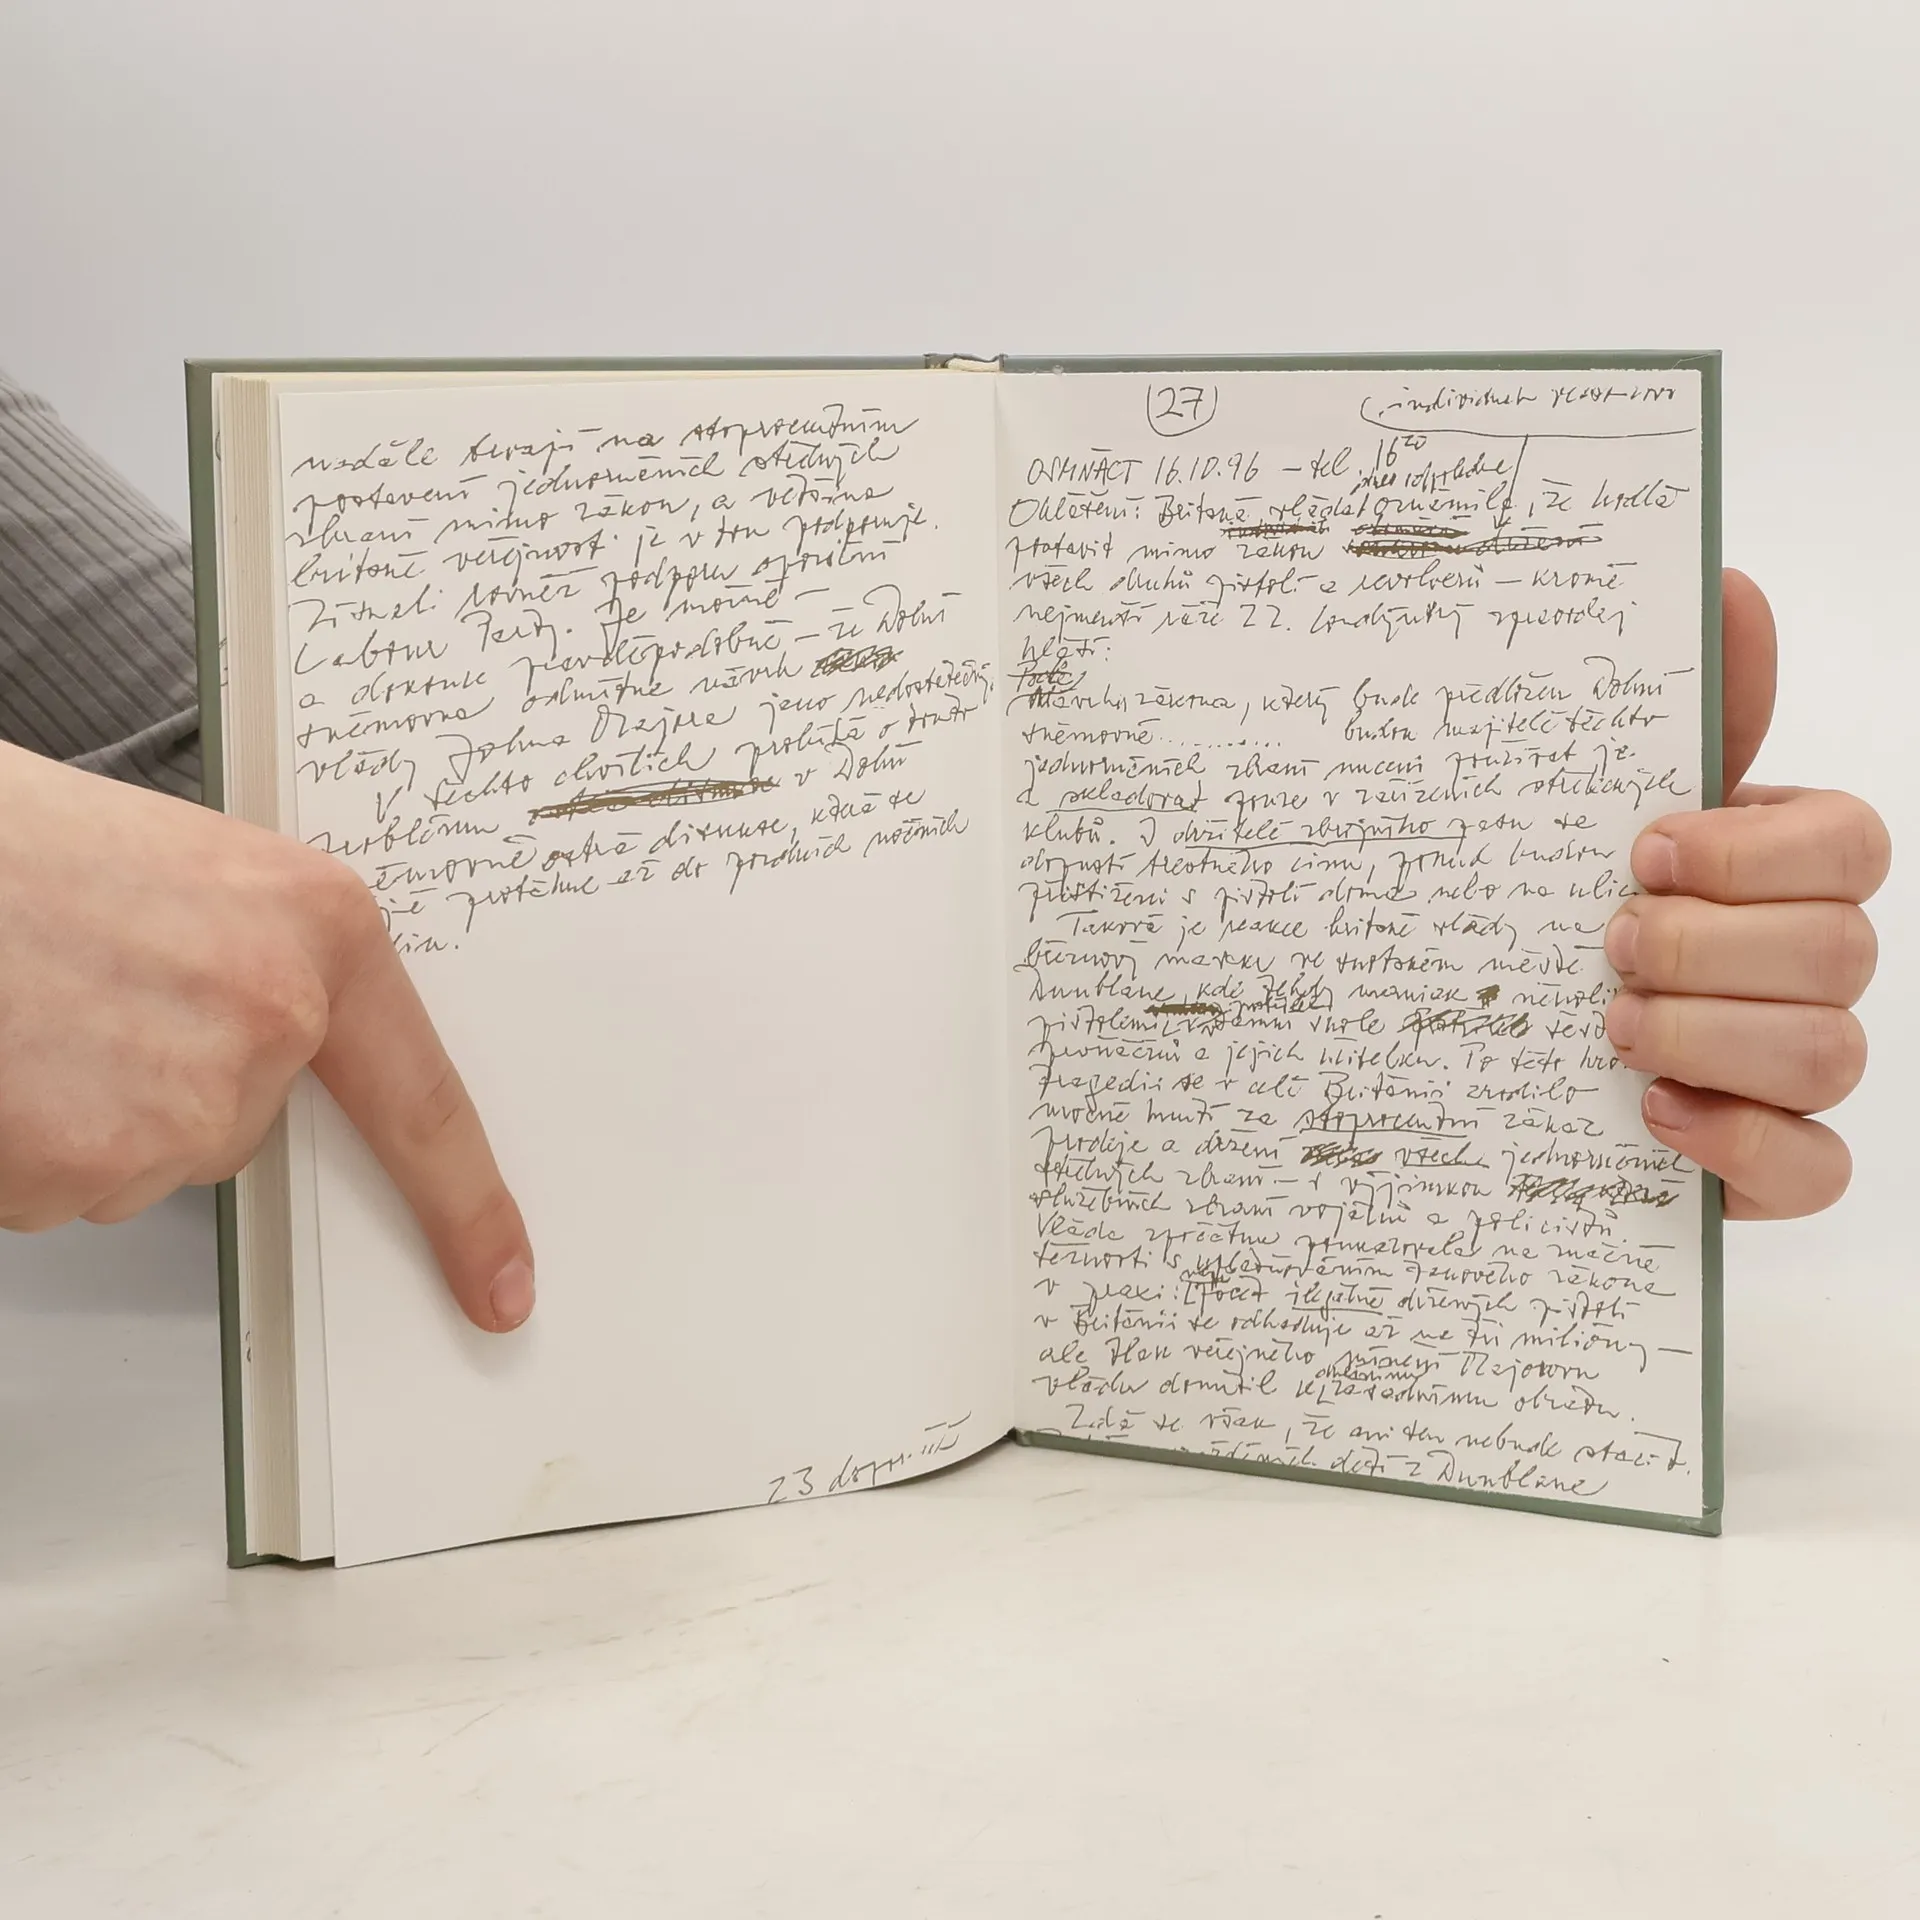 nadále trvají na stoprocentním
postavení jednoručních střelných
zbraní mimo zákon, a většina
britské veřejnosti je v tom podporuje.
Získali rovněž podporu opoziční
Labour Party. Je možné –
a dokonce pravděpodobné – že Dolní
sněmovna odmítne návrh
vlády Johna Majora jako nedostatečný.
V těchto chvílích probíhá o tomto
problému v Dolní
ěmovně ostrá diskuse, která se
jně protáhne až do pozdních nočních
din.
23 dopr.
27
(individuál vlastnictví
OSMNÁCT 16.10.96 – tel 16²⁰
dnes odpoledne
Ohlášení: Britská vláda oznámila, že hodlá
postavit mimo zákon
všech druhů pistolí a revolverů – kromě
nejmenší ráže 22. Londýnský zpravodaj
hlásí:
Podle
návrhu zákona, který bude předložen Dolní
sněmovně ............ budou majitelé těchto
jednoručních zbraní muset používat je
a skladovat pouze v zařízeních střeleckých
klubů. I držitelé zbrojního pasu se
dopustí trestného činu, pokud budou
přistiženi s pistolí doma nebo na ulic
Taková je reakce britské vlády na
březnový masakr ve skotském městě
Dunblane, kde tehdy maniak
pistolemi v škole šest
prvňáčků a jejich učitelku. Po této hro
tragedii se v celé Británii zrodilo
mocné hnutí za stoprocentní zákaz
prodeje a držení všech jednoručních
střelných zbraní – s výjimkou
služebních zbraní vojáků a policistů.
Vláda zpočátku poukazovala na značné
těžkosti s uplatňováním takového zákona
v praxi: počet ilegálně držených pistolí
v Británii se odhaduje až na tři milióny –
ale tlak veřejného mínění Majorovu
vládu donutil k zásadnímu obratu.
Zdá se však, že ani ten nebude stačit.
dětí z Dunblane